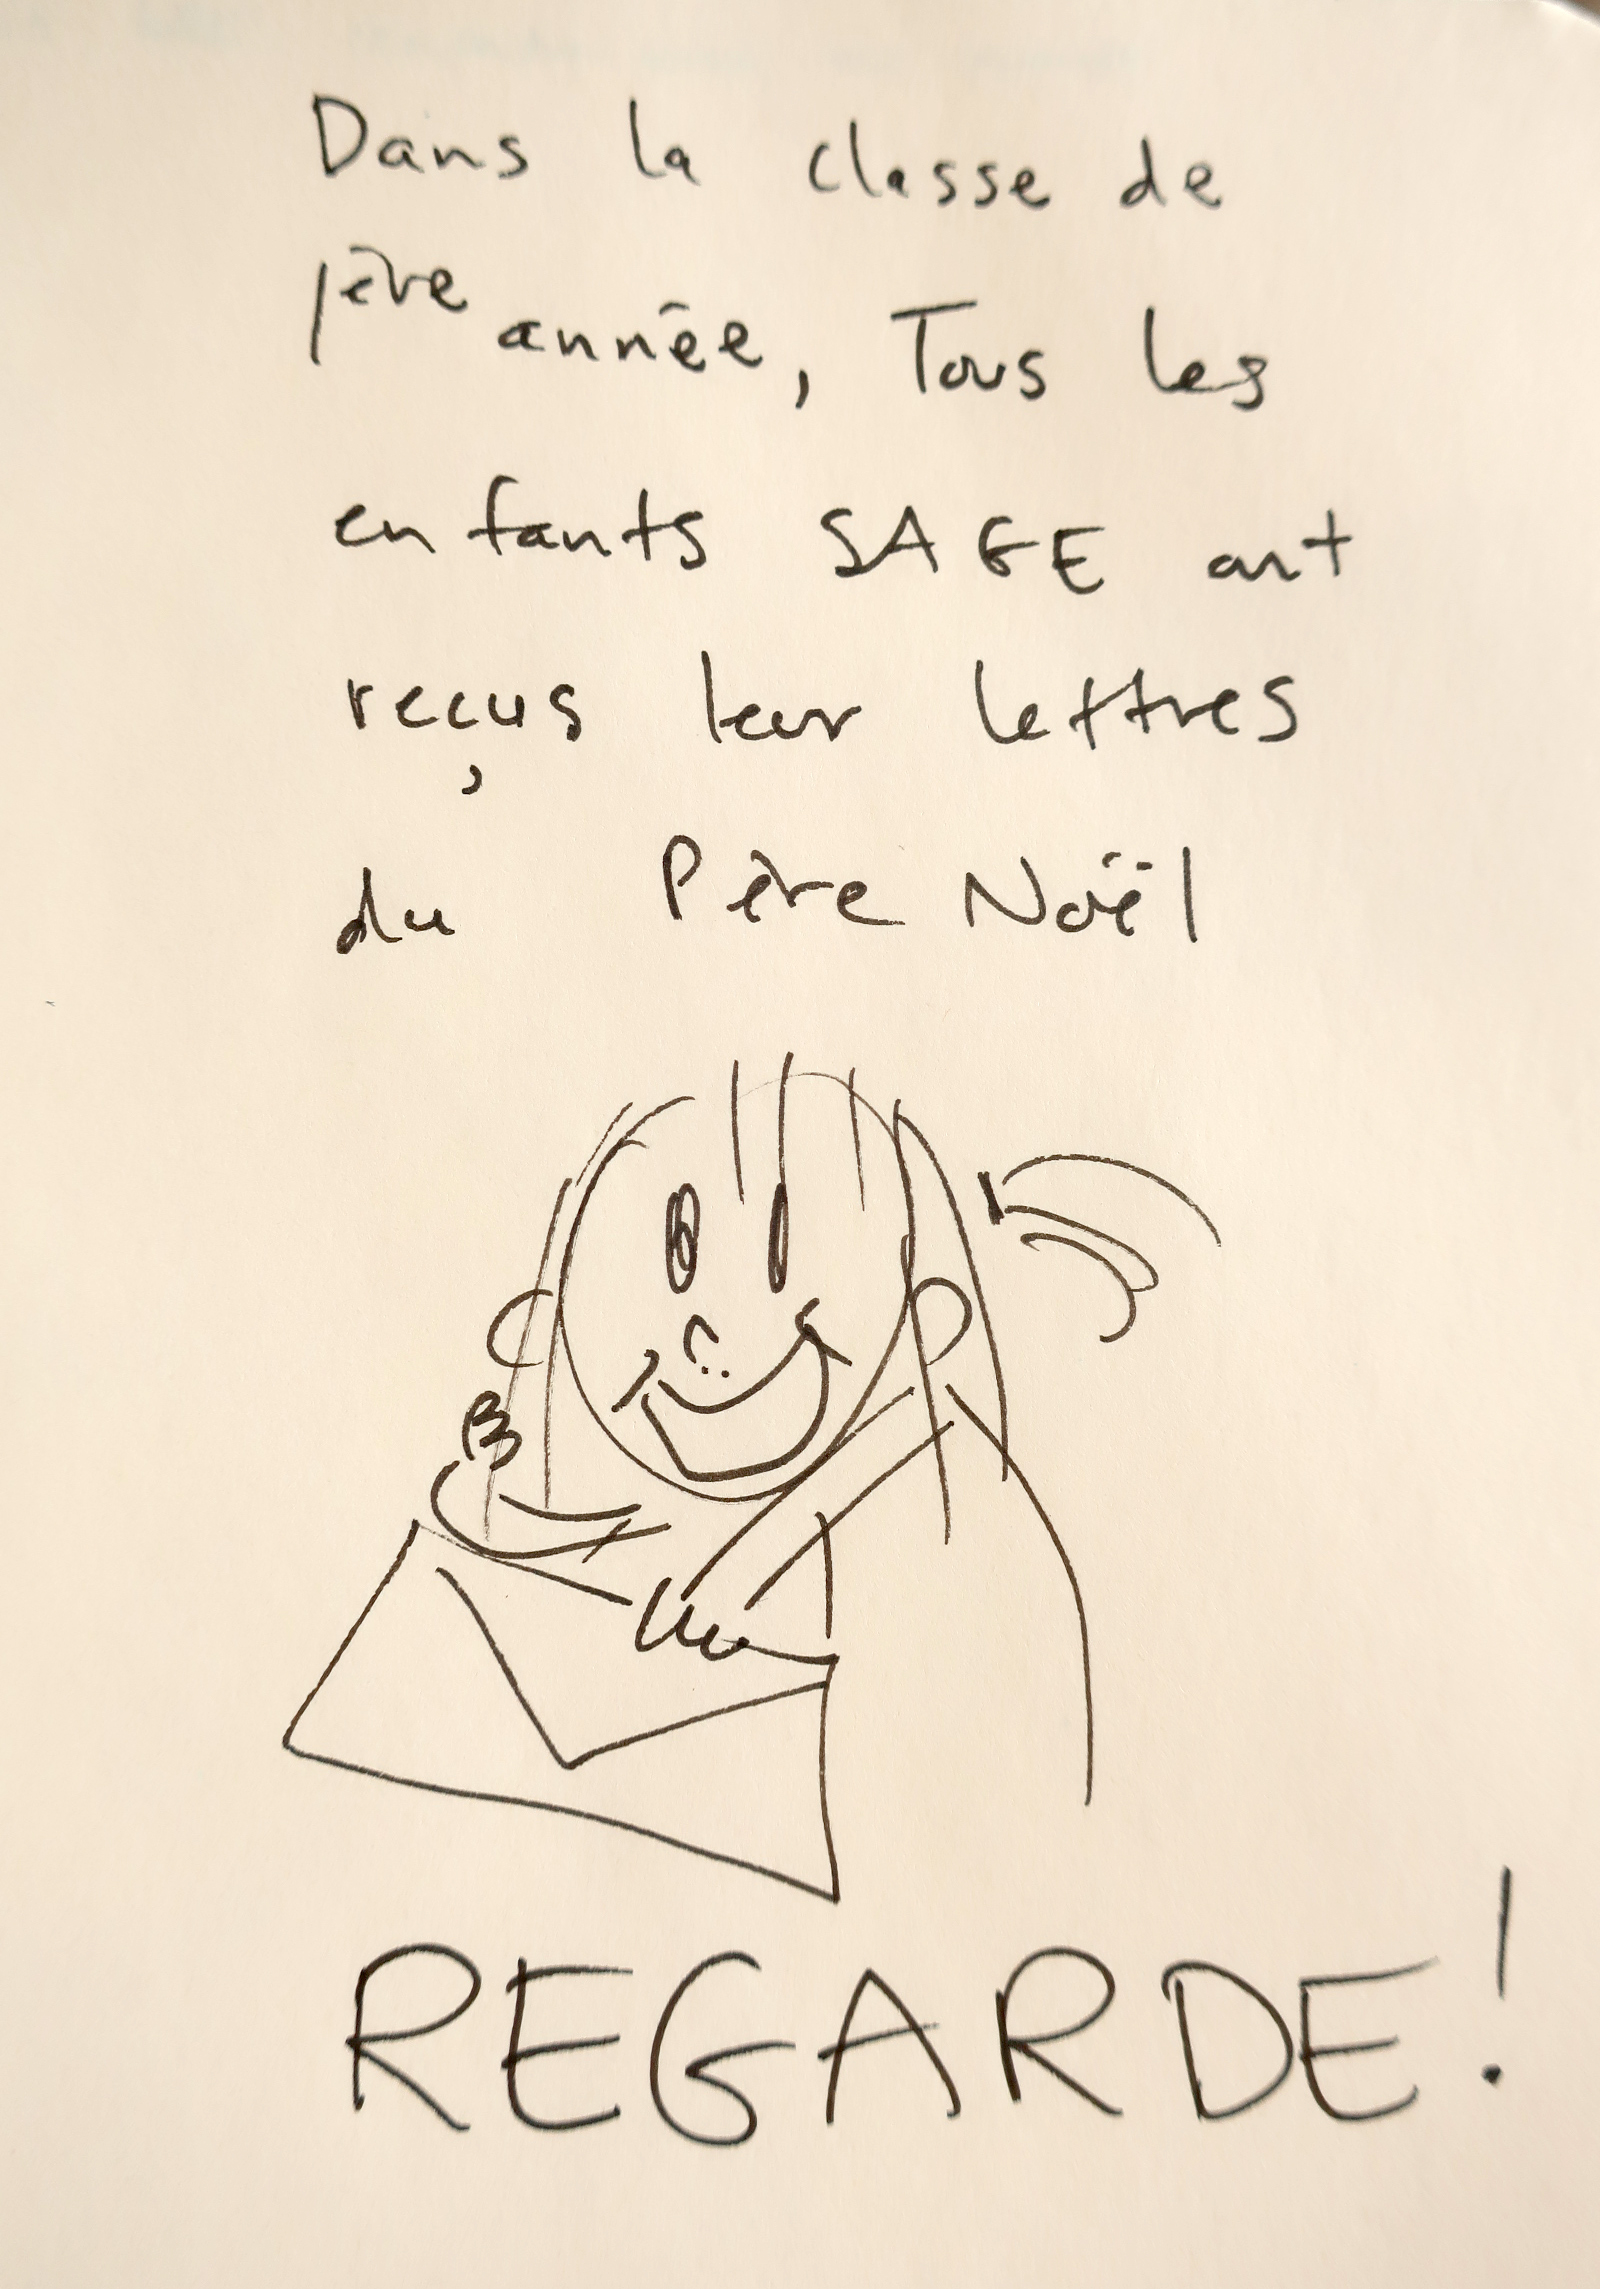 Dans la classe de
1ère année, Tous les
enfants SAGE ont
reçus leur lettres
du Père Noël
REGARDE!